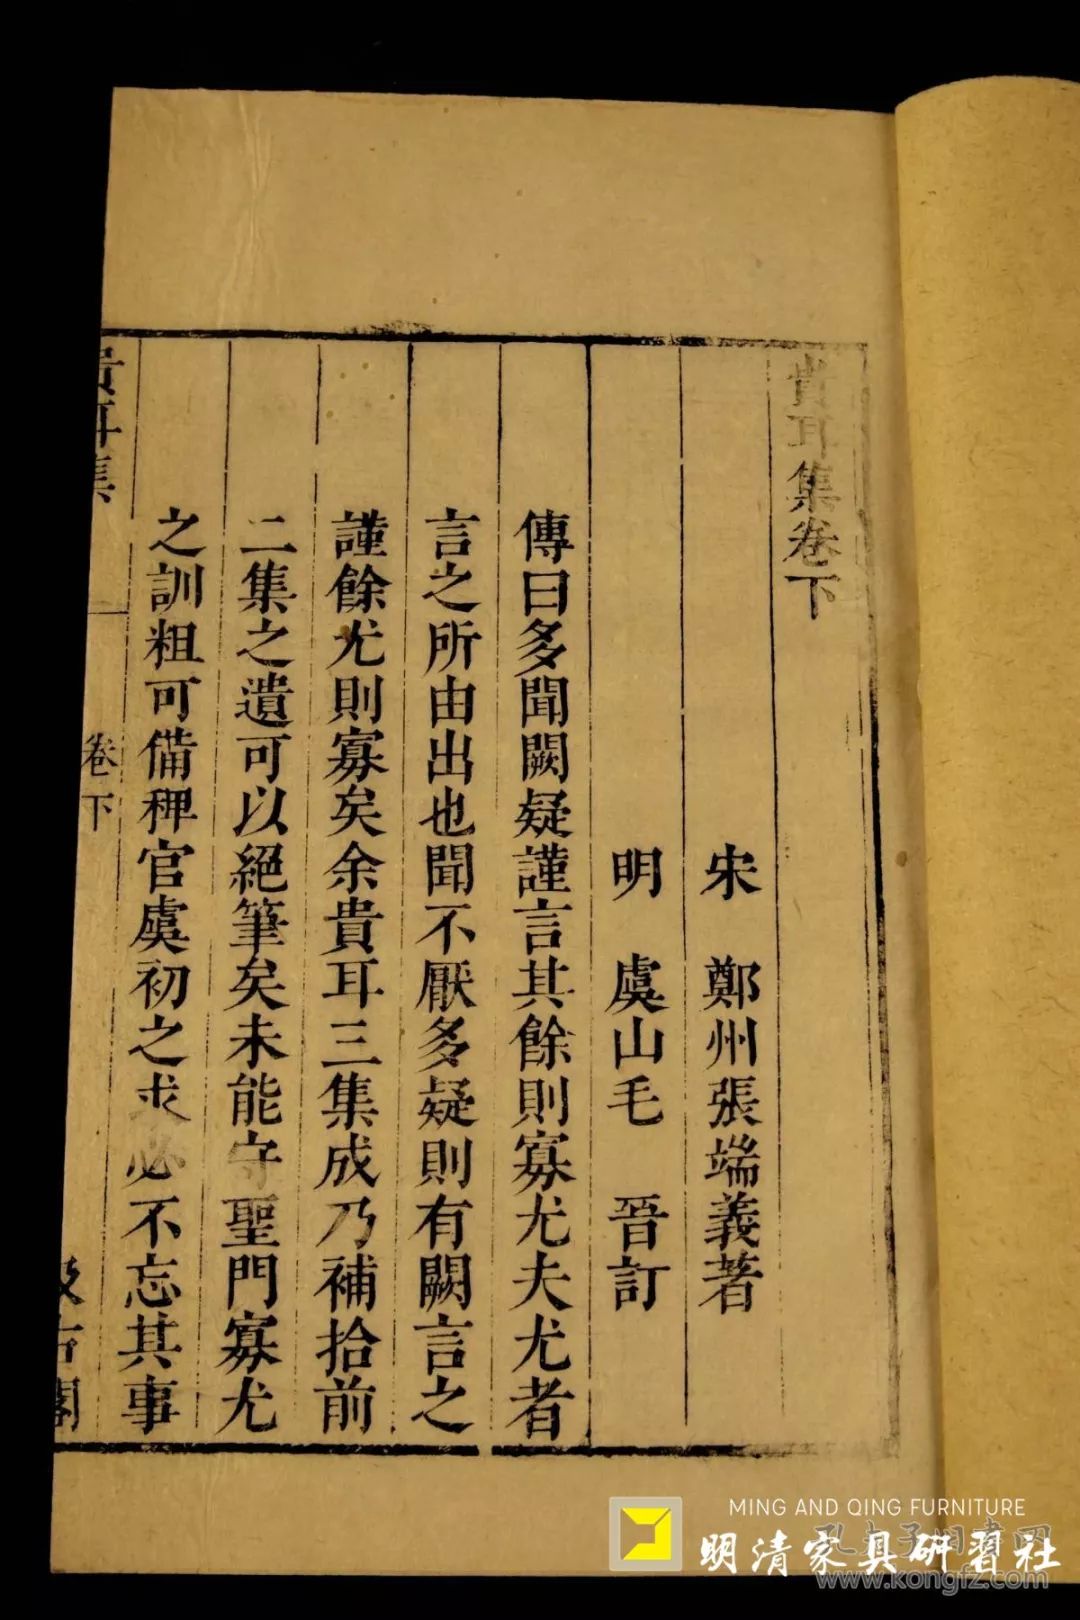 貴耳集卷下
宋　鄭州張端義著
明　虞山毛　晉訂
傳曰多聞闕疑謹言其餘則寡尤夫尤者
言之所由出也聞不厭多疑則有闕言之
謹餘尤則寡矣余貴耳三集成乃補拾前
二集之遺可以絕筆矣未能守聖門寡尤
之訓粗可備稗官虞初之求必不忘其事
貴耳集　卷下　汲古閣
MING AND QING FURNITURE
明清家具研習社
孔夫子旧书网
www.kongfz.com